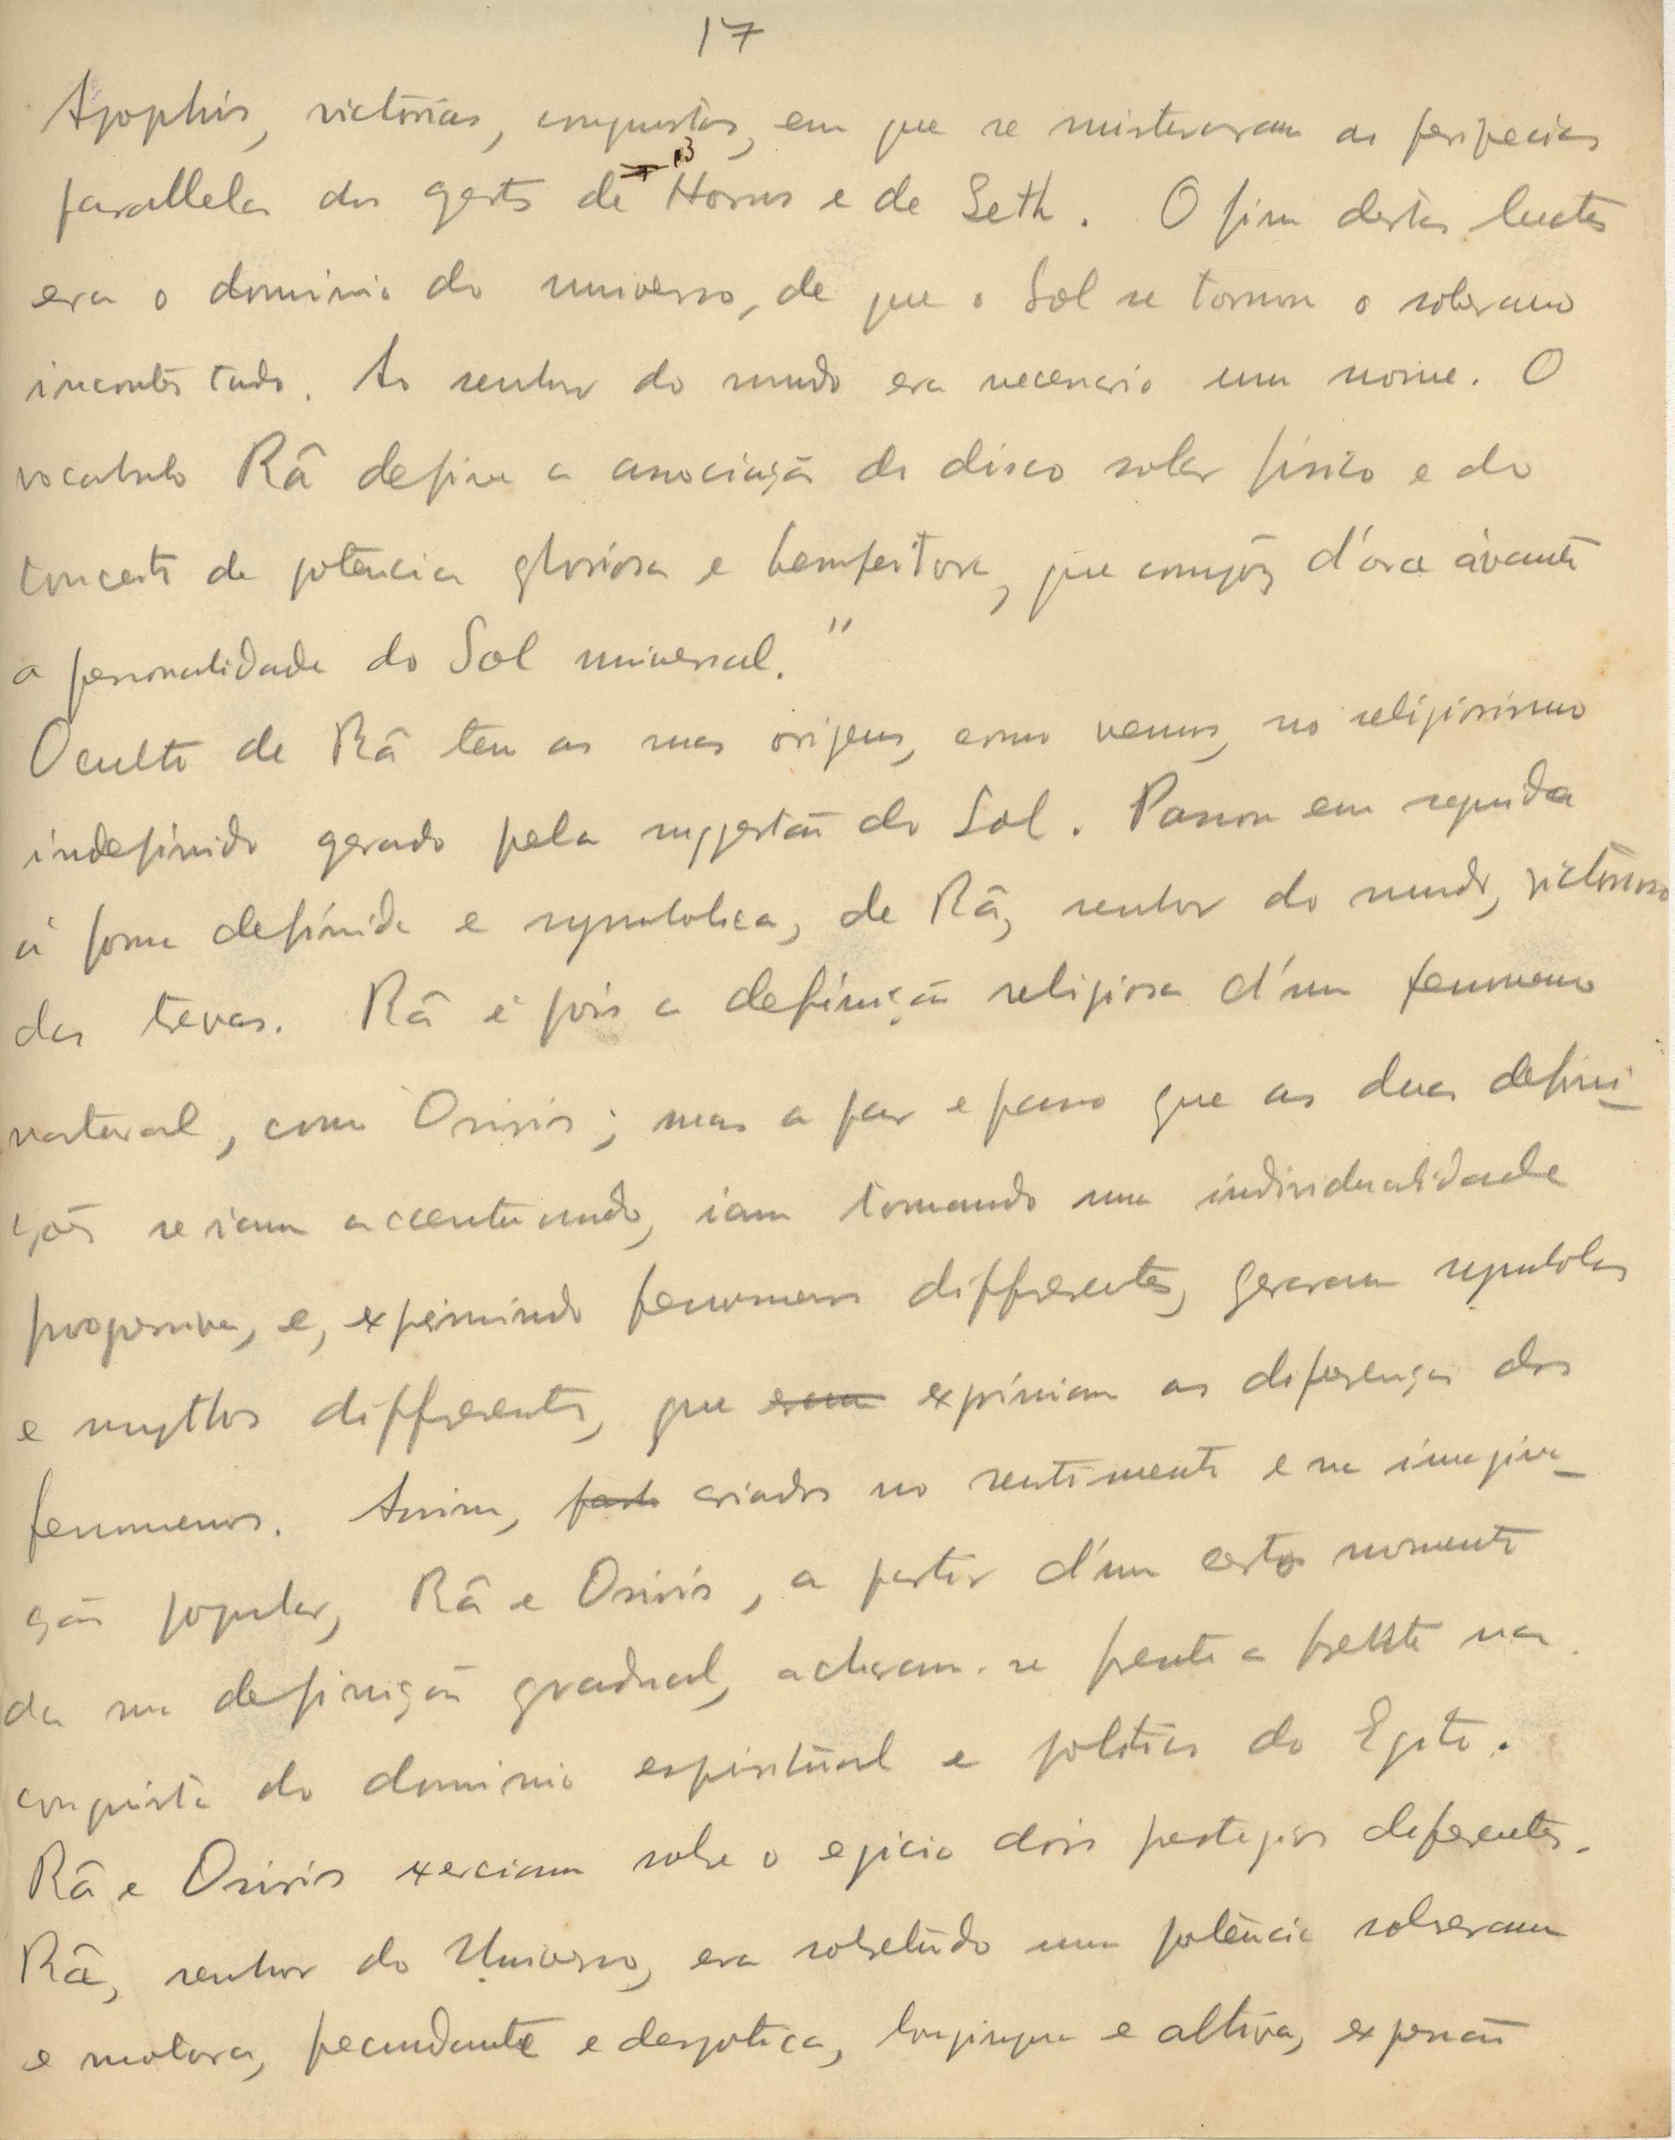 17
Apophis, victorias, conquistas, em que se misturavam as peripecias
parallelas dos gestos de Horus e de Seth. O fim destas luctas
era o dominio do universo, de que o Sol se tornou o soberano
incontestado. Ao senhor do mundo era necessario um nome. O
vocabulo Râ define a associação do disco solar fisico e do
conceito de potencia gloriosa e bemfeitora, que compõz d'ora ávante
a personalidade do Sol universal."
O culto de Râ tem as suas origens, como vemos, no religiosismo
indefinido gerado pela suggestão do Sol. Passou em seguida
á forma definida e symbolica, de Râ, senhor do mundo, victorioso
das trevas. Râ é pois a definição religiosa d'um fenomeno
natural, como Osiris; mas a par e passo que as duas defini-
ções se iam accentuando, iam tomando uma individualidade
progressiva, e, exprimindo fenomenos differentes, geraram symbolos
e mythos differentes, que eram exprimiam as diferenças dos
fenomenos. Assim, criados no sentimento e na imagina-
ção popular, Râ e Osiris, a partir d'um certo momento
da sua definição gradual, acharam-se frente a frente na
conquista do dominio espiritual e politico do Egito.
Râ e Osiris exerciam sobre o egicio dois prestigios diferentes.
Râ, senhor do Universo, era sobretudo uma potencia soberana
e motora, fecundante e despotica, longinqua e altiva, expressão